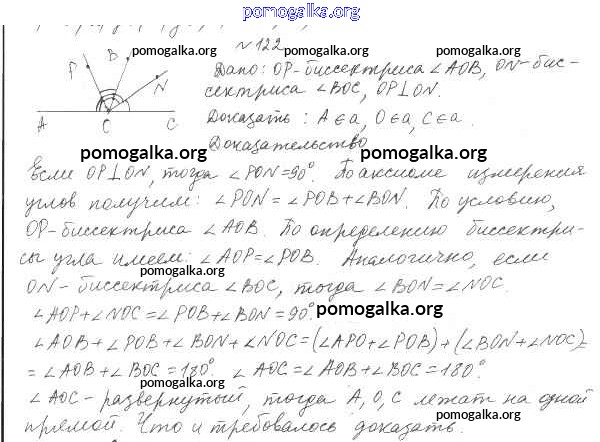 pomogalka.org
№122
P B pomogalka.org pomogalka.org
N Дано: OP-биссектриса ∠AOB, ON-бис-
сектриса ∠BOC, OP⊥ON. pomogalka.org
A C C Доказать: A∈a, O∈a, C∈a.
Доказательство
pomogalka.org pomogalka.org
Если OP⊥ON, тогда ∠PON=90°. По аксиоме измерения
углов получим: ∠PON=∠POB+∠BON. По условию,
OP-биссектриса ∠AOB. По определению биссектри-
сы угла имеем: ∠AOP=∠POB. Аналогично, если
pomogalka.org pomogalka.org
ON-биссектриса ∠BOC, тогда ∠BON=∠NOC.
∠AOP+∠NOC=∠POB+∠BON=90°. pomogalka.org
∠AOB+∠POB+∠BON+∠NOC=(∠APO+∠POB)+(∠BON+∠NOC)=
=∠AOB+∠BOC=180°. ∠AOC=∠AOB+∠BOC=180°.
pomogalka.org
∠AOC-развернутый, тогда A, O, C лежат на одной
pomogalka.org
прямой. Что и требовалось доказать.